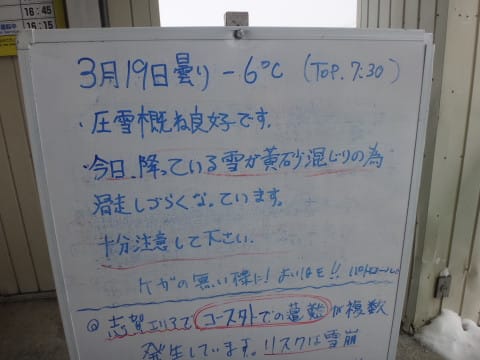 16:45
16:15
3月19日曇り −6℃ (TOP. 7:30)
・圧雪概ね良好です。
・今日、降っている雪が黄砂混じりの為
滑走しづらくなっています。
十分注意して下さい。
ケガの無い様に! よい1日を!! パトロール
◎志賀エリアで コース外での遭難 が複数
発生しています。リスクは雪崩